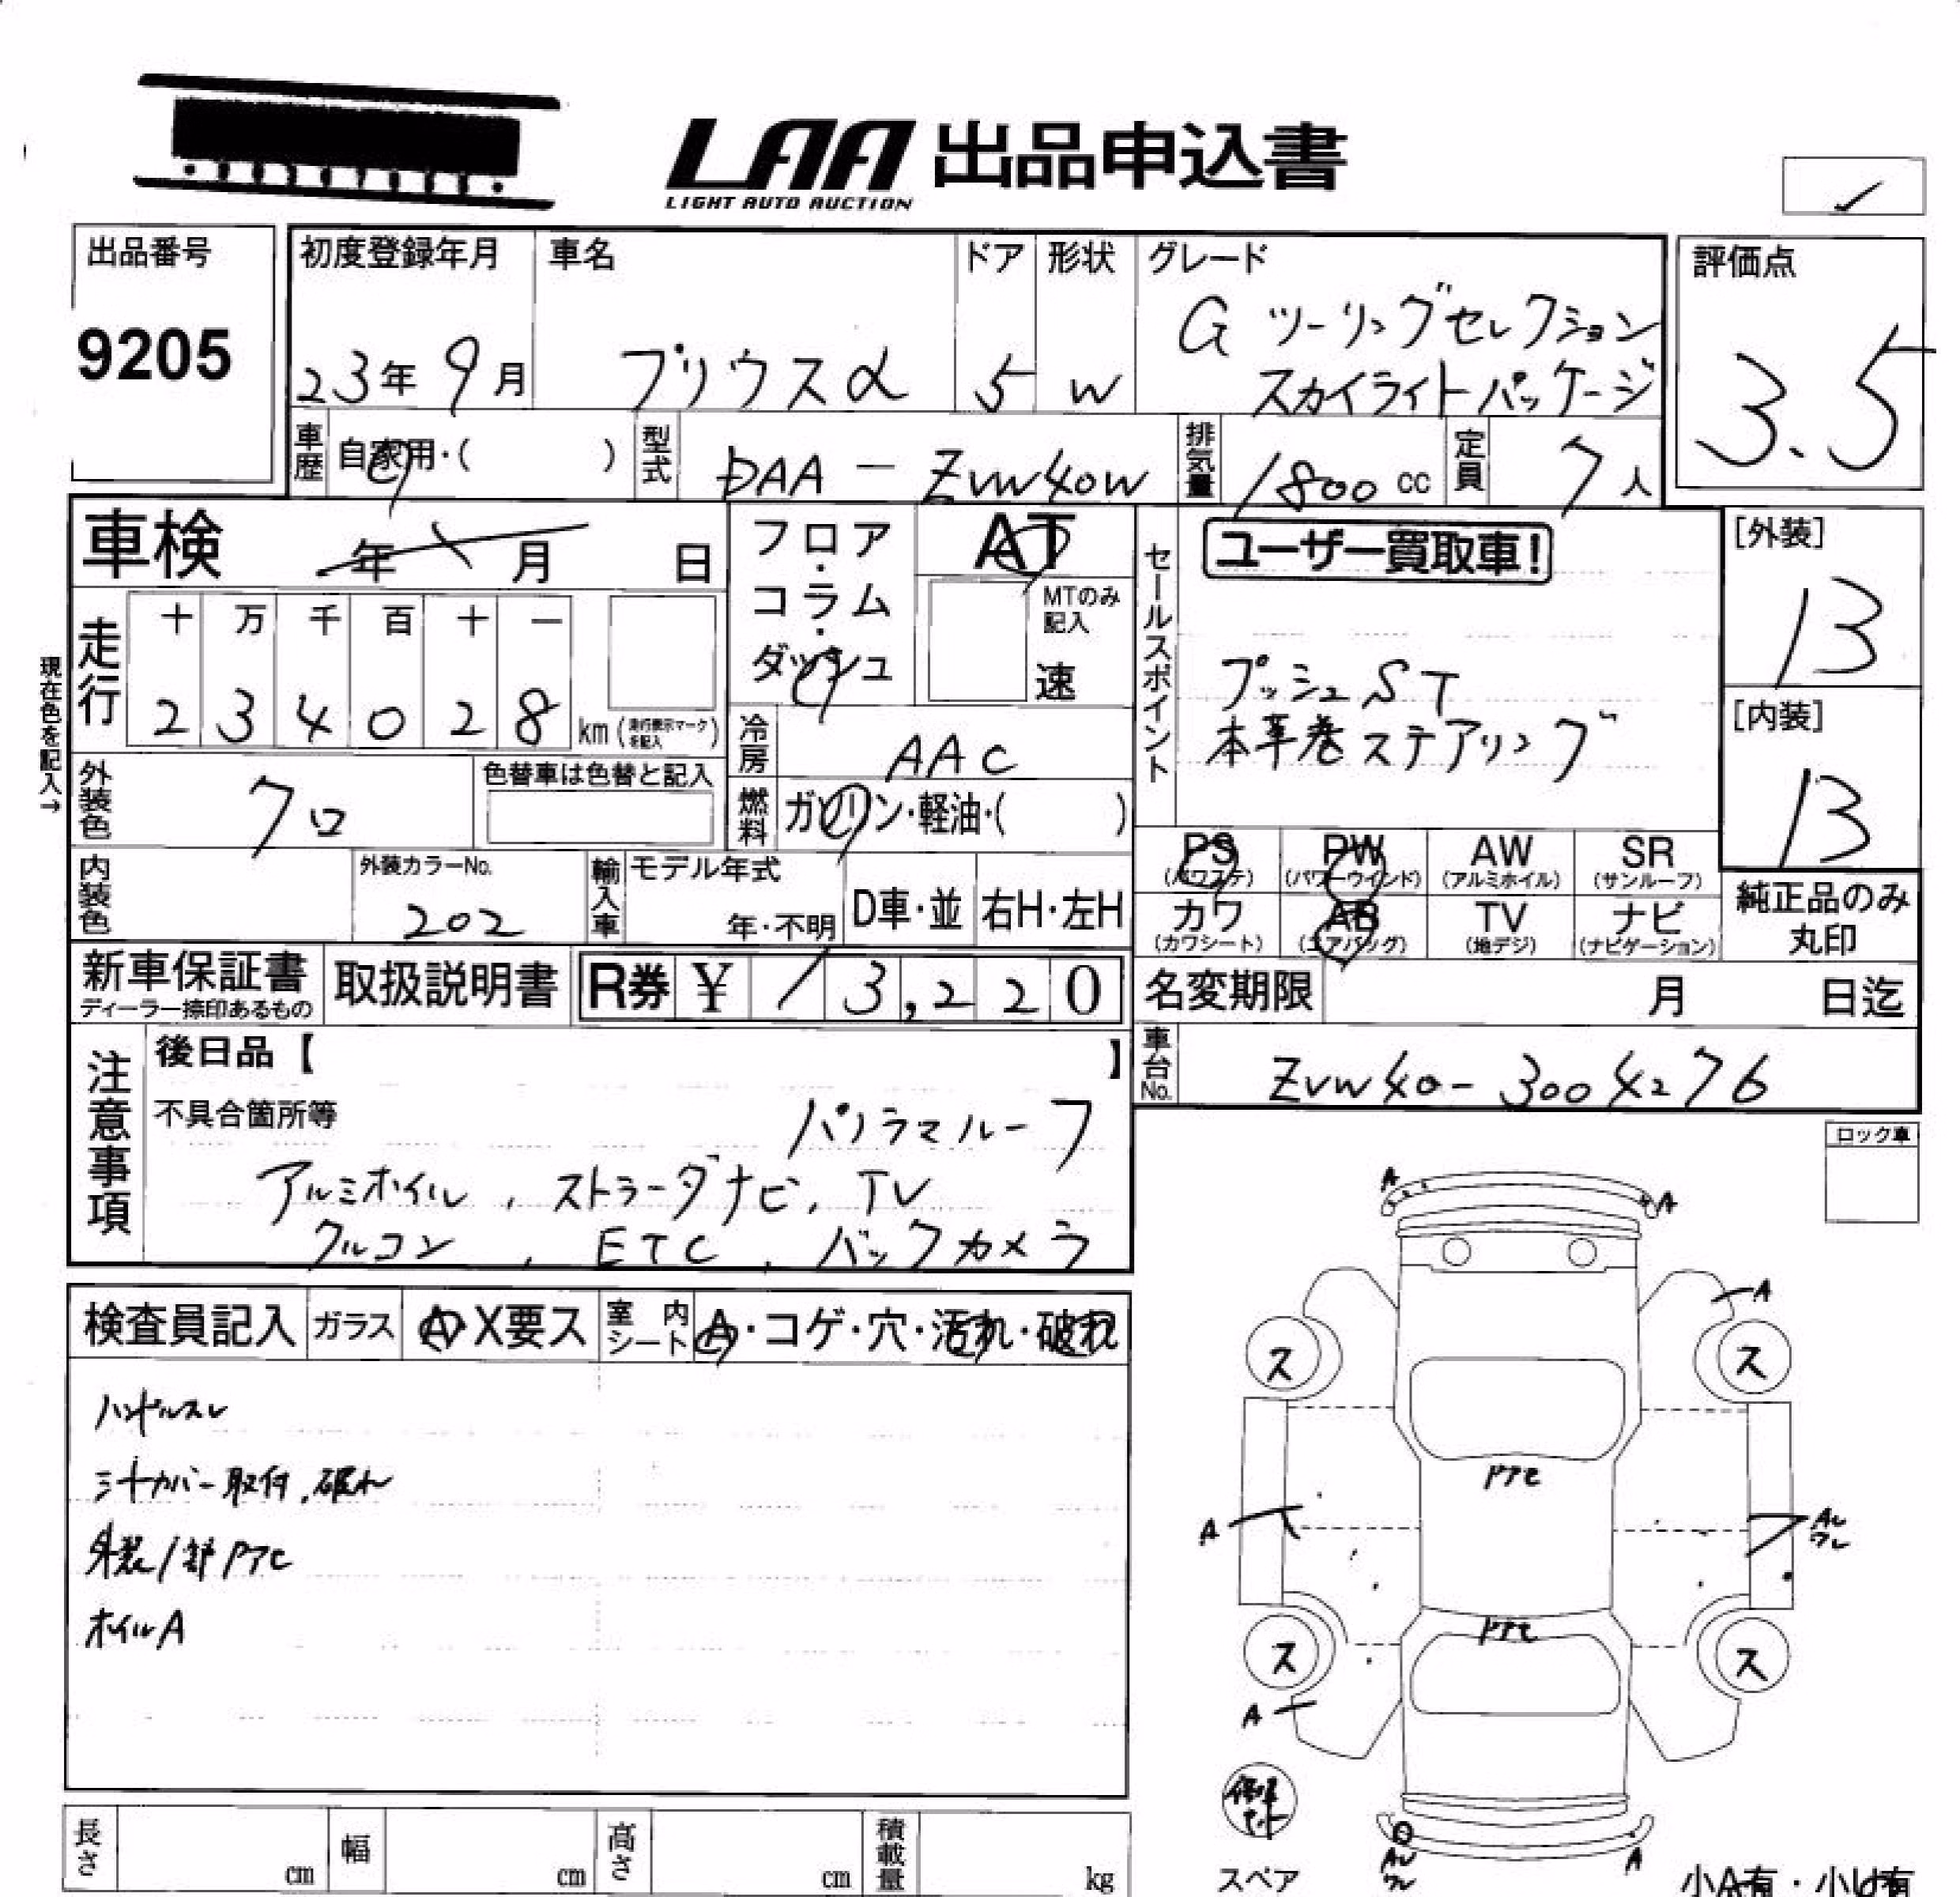 LAA 出品申込書
LIGHT AUTO AUCTION
出品番号
9205
初度登録年月
23年 9月
車名
プリウスα
ドア
5
形状
W
グレード
G ツーリングセレクション
スカイライトパッケージ
評価点
3.5
車歴
自家用・( )
型式
DAA - ZVW40W
排気量
1800 cc
定員
7人
車検
年 月 日
フロア・コラム・ダッシュ
AT
MTのみ
記入
速
走行
十 万 千 百 十 一
2 3 4 0 2 8 km (走行表示マークを記入)
現在色を記入→
冷房
AAC
外装色
クロ
色替車は色替と記入
燃料
ガソリン・軽油・( )
内装色
外装カラーNo.
202
輸入車
モデル年式
年・不明
D車・並
右H・左H
セールスポイント
ユーザー買取車!
プッシュST
本革巻ステアリング
[外装]
B
[内装]
B
PS
(パワステ)
PW
(パワーウインド)
AW
(アルミホイル)
SR
(サンルーフ)
カワ
(カワシート)
AB
(エアバッグ)
TV
(地デジ)
ナビ
(ナビゲーション)
純正品のみ
丸印
新車保証書
ディーラー捺印あるもの
取扱説明書
R券 ¥ 13,220
名変期限
月 日迄
車台No.
ZVW40-3004276
注意事項
後日品【 】
不具合箇所等
パノラマルーフ
アルミホイル, ストラーダナビ, TV
クルコン, ETC, バックカメラ
ロック車
検査員記入
ガラス
A X要ス
室内
シート
A・コゲ・穴・汚れ・破れ
ハンドルスレ
シートカバー取付, 破れ
外装1部ハアセ
ホイルA
A
A
A
ス
ス
A
A
ス
ス
A
A
スペア
長さ
cm
幅
cm
高さ
cm
積載量
kg
小A有・小U有